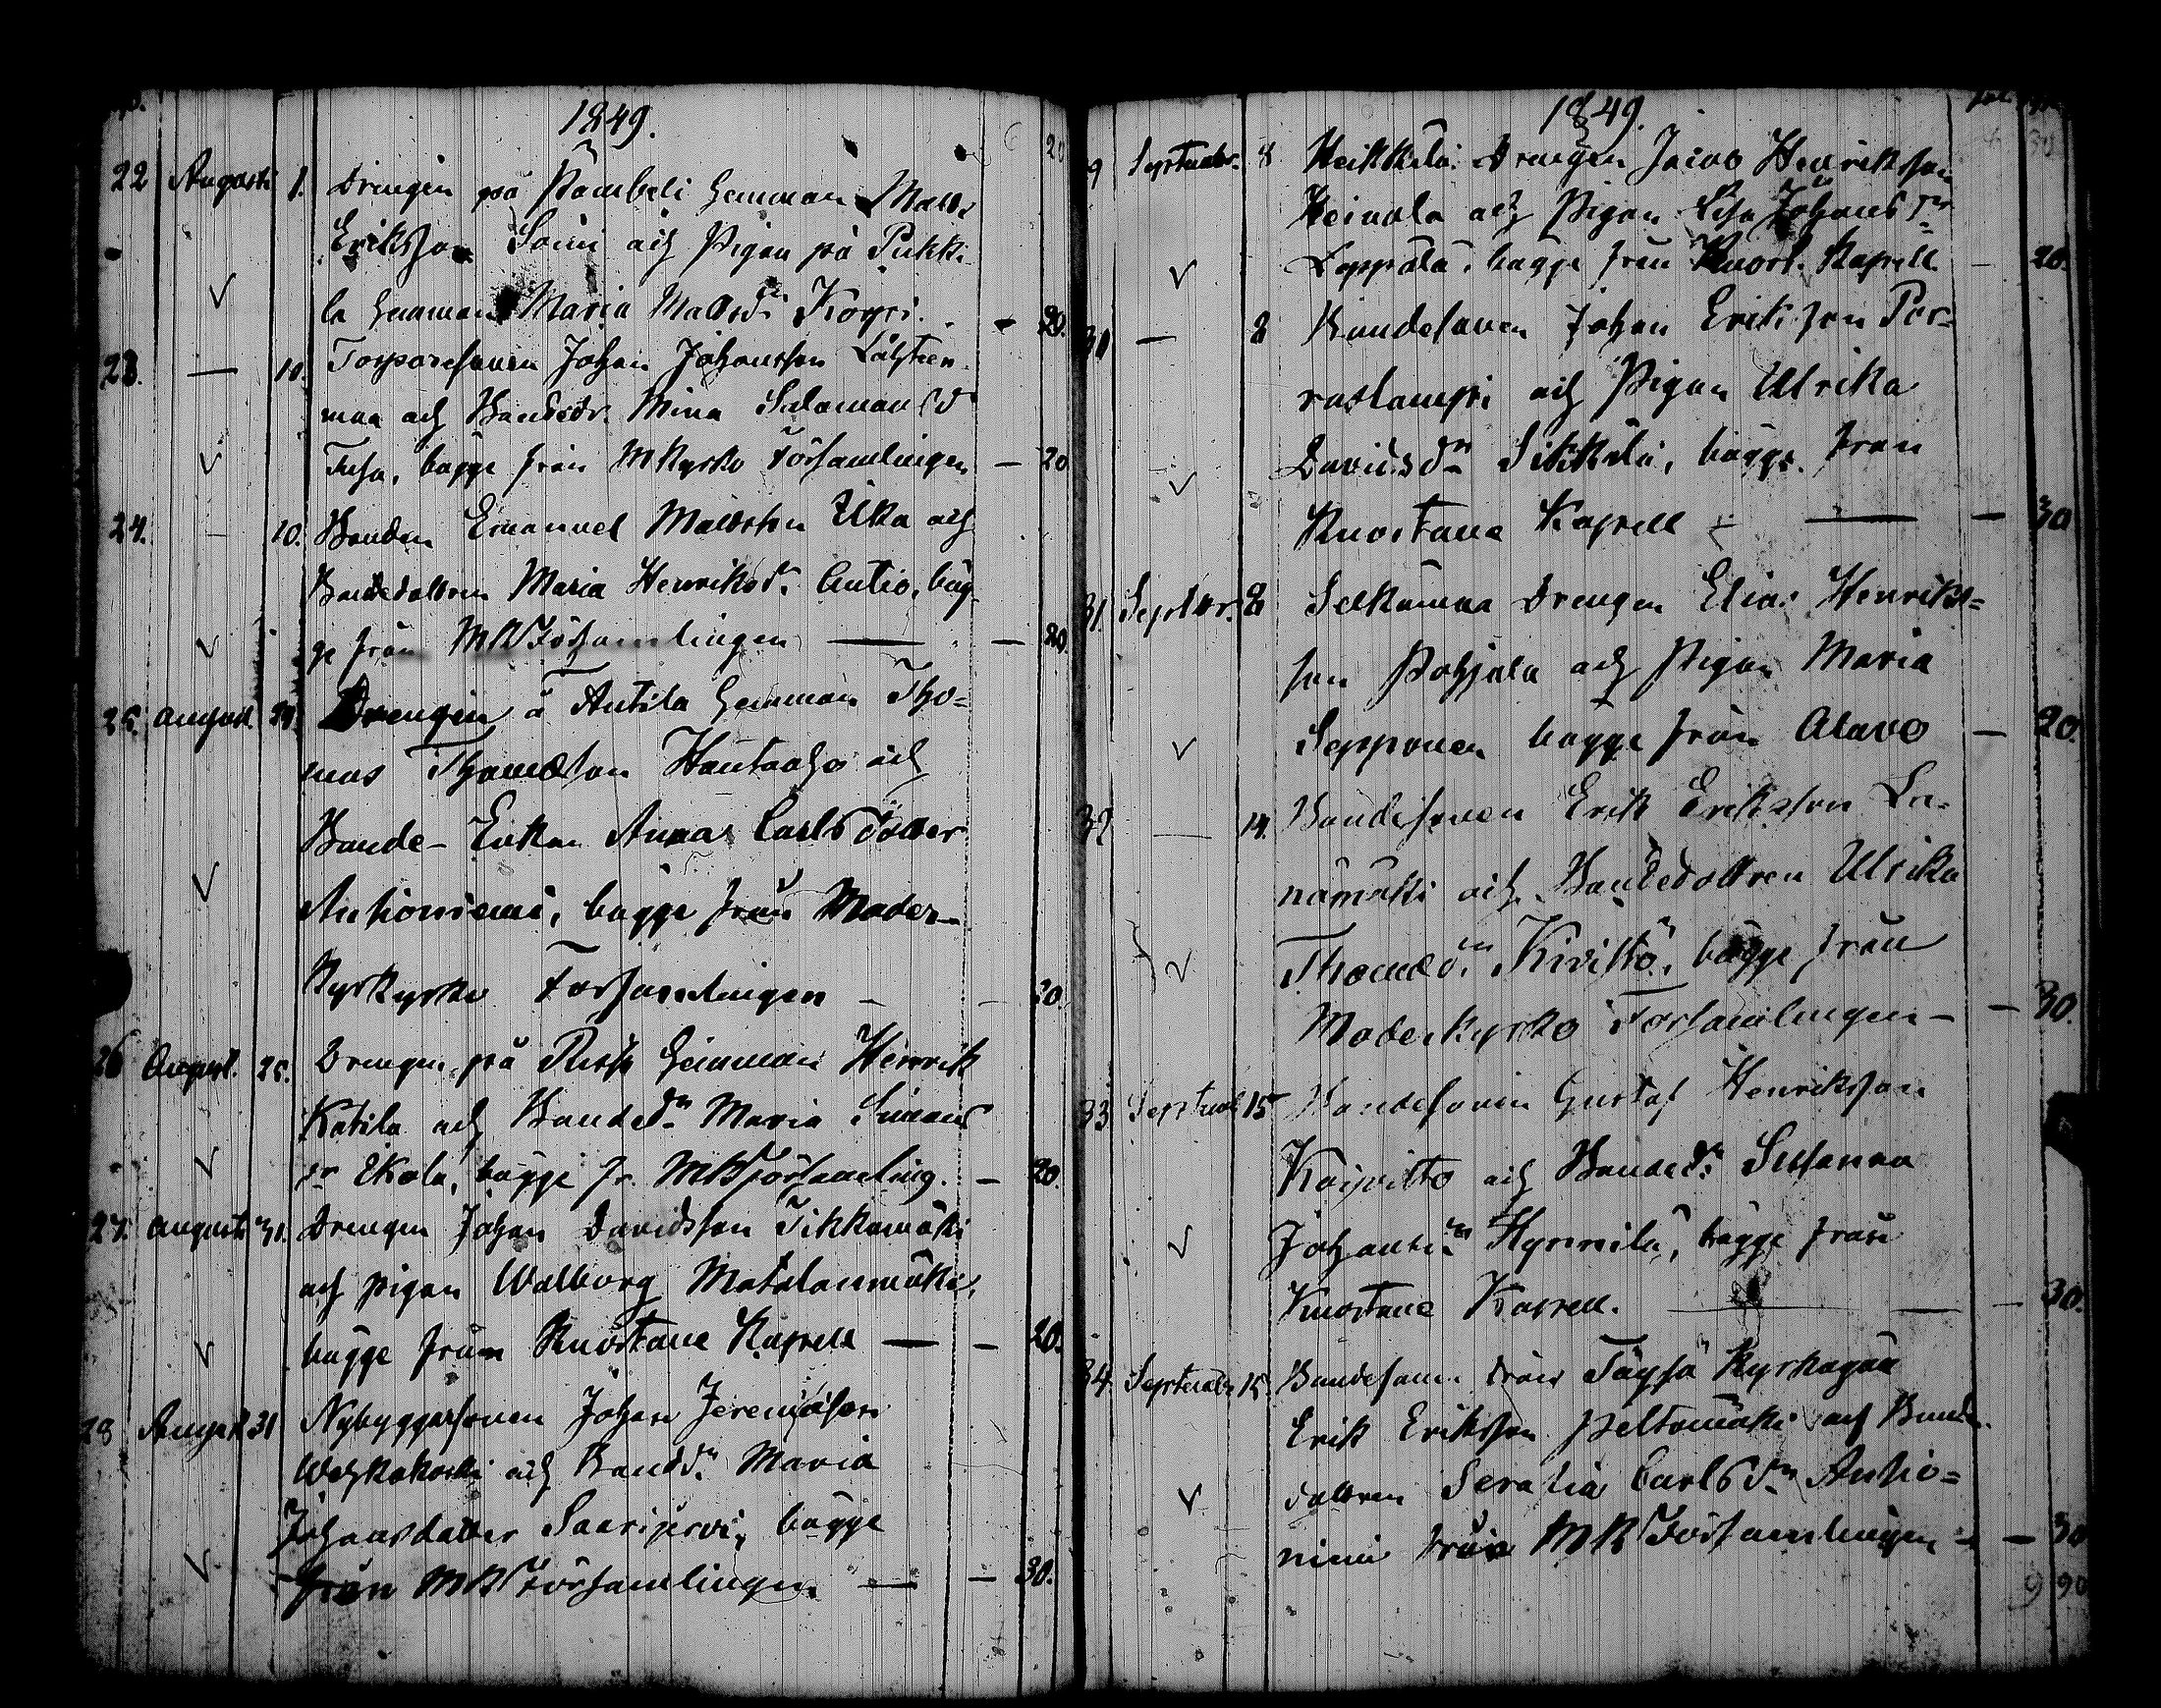 1849.
22 Augusti 1. Drengen på Pämbeli hemman Matts
Eriksson Soini och Pigan på Pukki-
la hemman Maria Mattsdr Köyri. - 20.
23. — 10. Torparesonen Johan Johansson
maa och Bondedr. Mina Salomonsdr
Tusa, bägge från MKyrko Församlingen — 20
24. — 10. Bonden Emanuel Mattsson Uka och
Bondedottren Maria Henriksdr. Autio, bäg-
ge från MK Församlingen — — 20.
25. August. Drengen å Antila hemman Tho-
mas Thomasson Hautaaho och
Bonde-Enkan Anna Carlsdotter
Autioniemi, bägge från Moder-
kyrko Församlingen — — 20.
26 August. 25. Drengen på hemman Henrik
Katila och Bondedr Maria Simons
dr Ekola, bägge fr. MKFörsamling. — 20.
27. Augusti 31. Drengen Johan Davidsson Tikkamäki
och pigan Walborg Matalanmäki,
bägge från Kuortane Kapell — — 20.
28 August 31 Nybyggarsonen Johan Jeremiasson
och Bondedr. Maria
Johansdotter Saarijervi, bägge
från MKFörsamlingen — — 30.
1849.
9 Septembr. 8 Heikkilä Drengen Jacob Henriksson
Heinola och Pigan Lisa Johansdr
Leppälä, bägge från Kuort. Kapell — 20.
30 — 8 Bondesonen Johan Eriksson Por-
raslampi och Pigan Ulrika
Davidsdr Sikkilä, bägge från
Kuortane Kapell — — — 30
31. Septbr. 8 Drengen Elias Henriks-
son Pohjola och Pigan Maria
Sepponen bägge från Alavo — 20.
32 — 14. Bondesonen Erik Eriksson La-
namäki och Bondedottren Ulrika
Thomasdr Kiviltö, bägge från
Moderkyrko Församlingen — — 30.
33 Septemb 15 Bondesonen Gustaf Henriksson
och Bondedr. Susanna
Johansdr Hynnilä, bägge från
Kuortane Kapell. — — — 30.
34. Septembr 15. Bondesonen från Töysä Kyrkogäll
Erik Eriksson Peltomäki och Bonde-
dottren Serafia Carlsdr Autio-
niemi från MK Församlingen — — 30
9 90